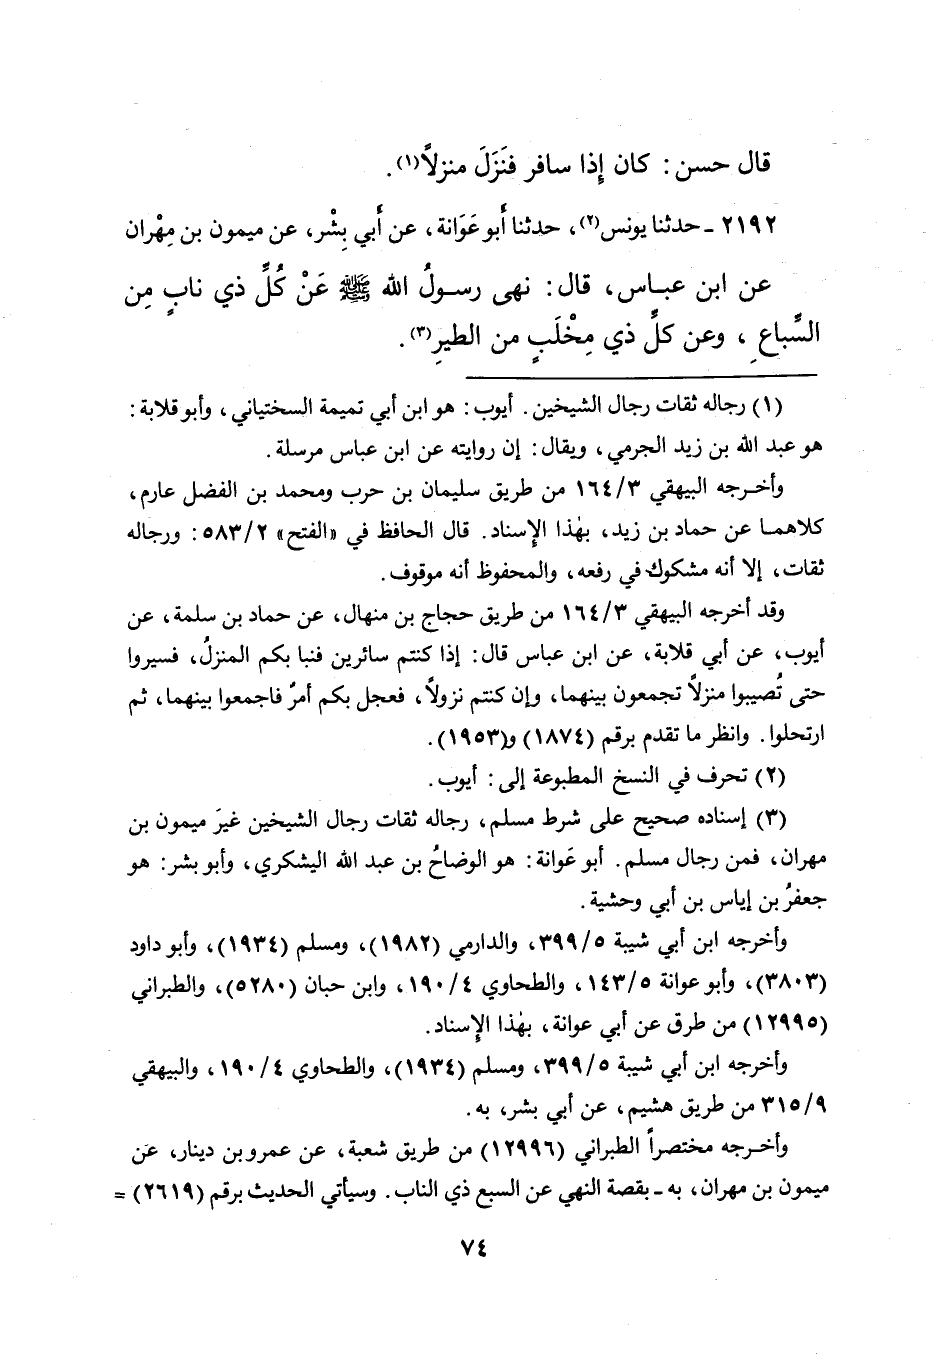 قال حسن : كان إِذا سافر فنَزَلَ منزلاً(١) .
٢١٩٢ ـ حدثنا يونس(٢)، حدثنا أَبو عَوَانة، عن أَبي بِشْر، عن ميمون بن مِهْران
عن ابن عباس، قال: نهى رسولُ الله ﷺ عَنْ كُلِّ ذي نابٍ مِن
السِّباعِ ، وعن كلِّ ذي مِخْلَبٍ من الطيرِ(٣) .
(١) رجاله ثقات رجال الشيخين . أيوب : هو ابن أبي تميمة السختياني، وأبو قلابة :
هو عبد الله بن زيد الجرمي، ويقال: إن روايته عن ابن عباس مرسلة .
وأخرجه البيهقي ١٦٤/٣ من طريق سليمان بن حرب ومحمد بن الفضل عارم،
كلاهما عن حماد بن زيد، بهٰذا الإِسناد. قال الحافظ في «الفتح» ٥٨٣/٢ : ورجاله
ثقات، إلا أنه مشكوك في رفعه، والمحفوظ أنه موقوف.
وقد أخرجه البيهقي ١٦٤/٣ من طريق حجاج بن منهال، عن حماد بن سلمة، عن
أيوب، عن أبي قلابة، عن ابن عباس قال: إذا كنتم سائرين فنبا بكم المنزلُ، فسيروا
حتى تُصيبوا منزلاً تجمعون بينهما، وإن كنتم نزولاً، فعجل بكم أمرٌ فاجمعوا بينهما، ثم
ارتحلوا. وانظر ما تقدم برقم (١٨٧٤) و(١٩٥٣).
(٢) تحرف في النسخ المطبوعة إلى: أيوب.
(٣) إسناده صحيح على شرط مسلم، رجاله ثقات رجال الشيخين غيرَ ميمون بن
مهران، فمن رجال مسلم. أبو عَوانة: هو الوضاحُ بن عبد الله اليشكري، وأبو بشر: هو
جعفرُ بن إياس بن أبي وحشية .
وأخرجه ابن أبي شيبة ٣٩٩/٥، والدارمي (١٩٨٢)، ومسلم (١٩٣٤)، وأبو داود
(٣٨٠٣)، وأبو عوانة ١٤٣/٥، والطحاوي ١٩٠/٤، وابن حبان (٥٢٨٠)، والطبراني
(١٢٩٩٥) من طرق عن أبي عوانة، بهٰذا الإِسناد.
وأخرجه ابن أبي شيبة ٣٩٩/٥، ومسلم (١٩٣٤)، والطحاوي ١٩٠/٤، والبيهقي
٣١٥/٩ من طريق هشيم، عن أبي بشر، به .
وأخرجه مختصراً الطبراني (١٢٩٩٦) من طريق شعبة، عن عمرو بن دينار، عن
ميمون بن مهران، به ـ بقصة النهي عن السبع ذي الناب. وسيأتي الحديث برقم (٢٦١٩) =
٧٤